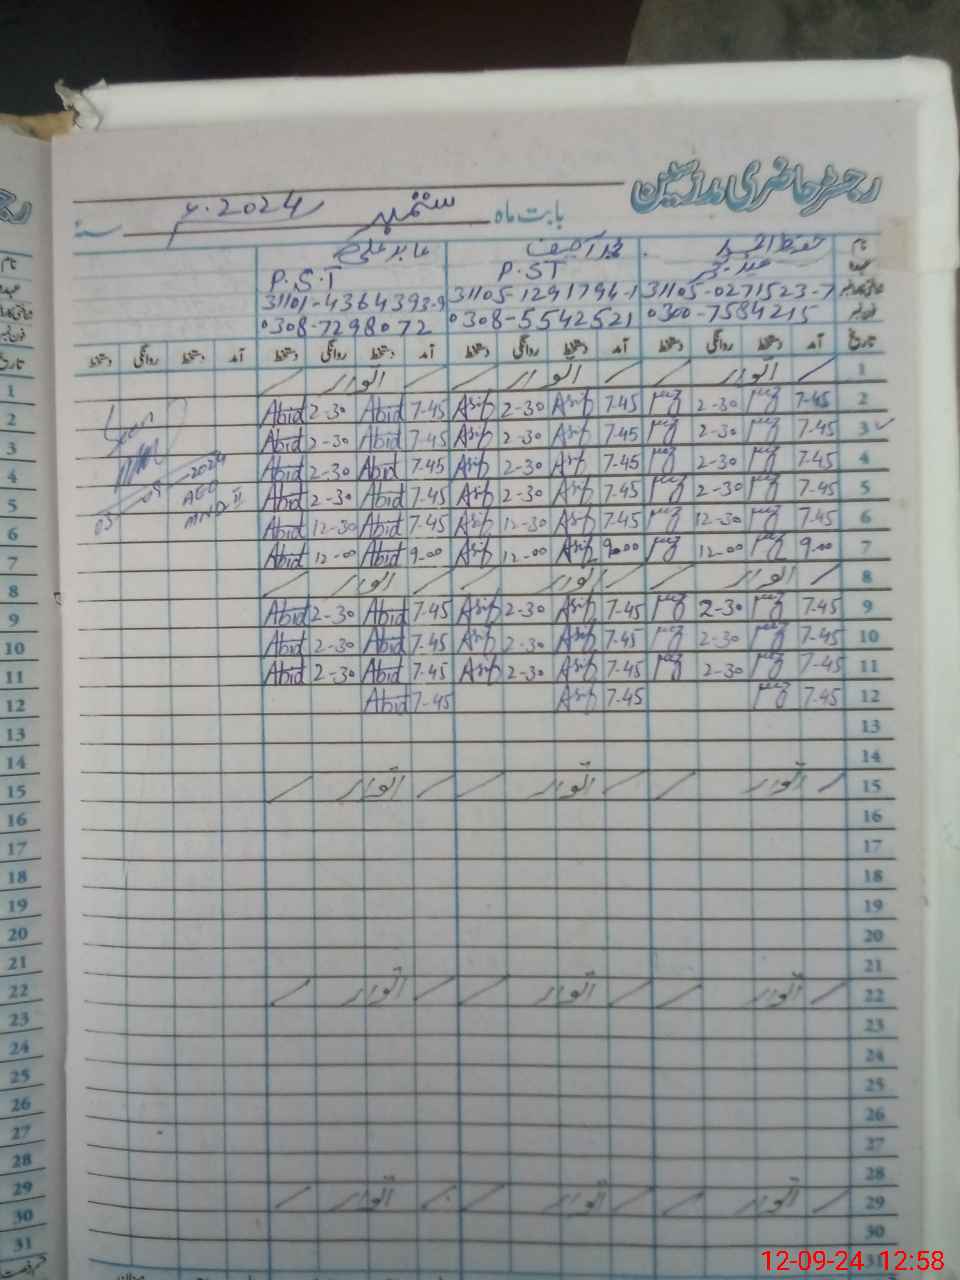 رجسٹر حاضری مدرسین
بابت ماہ ستمبر 2024ء سنہ
نام محمد آصف عابد علی
P.S.T P.ST
31105-0271523-7 31105-1291794-1 31101-4364393-9
0300-7584215 0308-5542521 0308-7298072
تاریخ آمد دستخط روانگی دستخط آمد دستخط روانگی دستخط آمد دستخط روانگی دستخط آمد دستخط روانگی دستخط
1 اتوار اتوار اتوار
Abid 2-30 Abid 7-45 Asif 2-30 Asif 7-45 2-30 7-45 2
Abid 2-30 Abid 7-45 Asif 2-30 Asif 7-45 2-30 7-45 3
Abid 2-30 Abid 7-45 Asif 2-30 Asif 7-45 2-30 7-45 4
Abid 2-30 Abid 7-45 Asif 2-30 Asif 7-45 2-30 7-45 5
Abid 12-30 Abid 7-45 Asif 12-30 Asif 7-45 12-30 7-45 6
Abid 12-00 Abid 9-00 Asif 12-00 Asif 9-00 12-00 9-00 7
8 اتوار اتوار اتوار
Abid 2-30 Abid 7-45 Asif 2-30 Asif 7-45 2-30 7-45 9
Abid 2-30 Abid 7-45 Asif 2-30 Asif 7-45 2-30 7-45 10
Abid 2-30 Abid 7-45 Asif 2-30 Asif 7-45 2-30 7-45 11
Abid 7-45 Asif 7-45 7-45 12
13
14
15 اتوار اتوار اتوار
16
17
18
19
20
21
22 اتوار اتوار اتوار
23
24
25
26
27
28
29 اتوار اتوار اتوار
30
31
03-09-2024
AEO
1
2
3
4
5
6
7
8
9
10
11
12
13
14
15
16
17
18
19
20
21
22
23
24
25
26
27
28
29
30
31
12-09-24 12:58